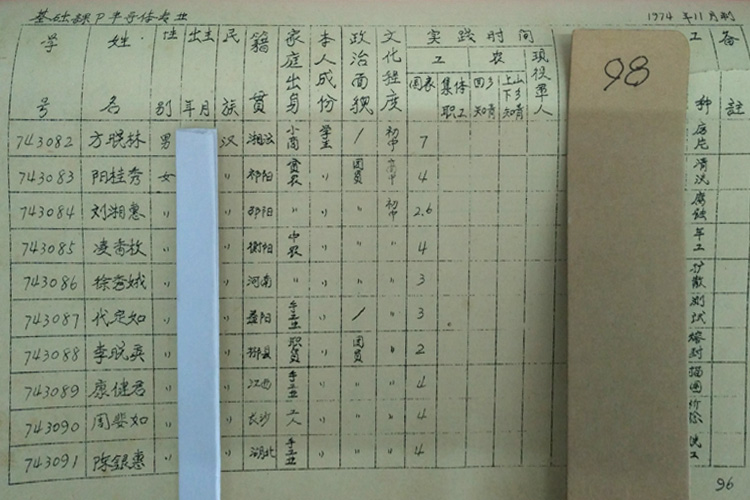 基础课P半导体专业 1974年11月制
学号 姓名 性别 出生年月 民族 籍贯 家庭出身 本人成份 政治面貌 文化程度 实践时间 工 国家职工 集体 农 回乡知青 上山下乡知青 现役军人 工种 备註
98
743082 方晓林 男 汉 湘潭 小商 学生 / 初中 7
743083 阳桂秀 女 〃 祁阳 贫农 〃 团员 高中 4 清洗
743084 刘湘惠 〃 〃 邵阳 〃 〃 〃 初中 2.6 腐蚀
743085 凌香枚 〃 〃 衡阳 中农 〃 〃 〃 4
743086 徐秀娥 〃 〃 河南 〃 〃 〃 〃 3 扩散
743087 代定如 〃 〃 益阳 手工业 〃 / 〃 3 测试
743088 李晓英 〃 〃 职员 〃 团员 〃 2 熔封
743089 康健君 〃 〃 江西 手工业 〃 〃 〃 4 描图
743090 周 如 〃 〃 长沙 工人 〃 〃 〃 4
743091 陈银惠 〃 〃 湖北 手工业 〃 〃 〃 4
96